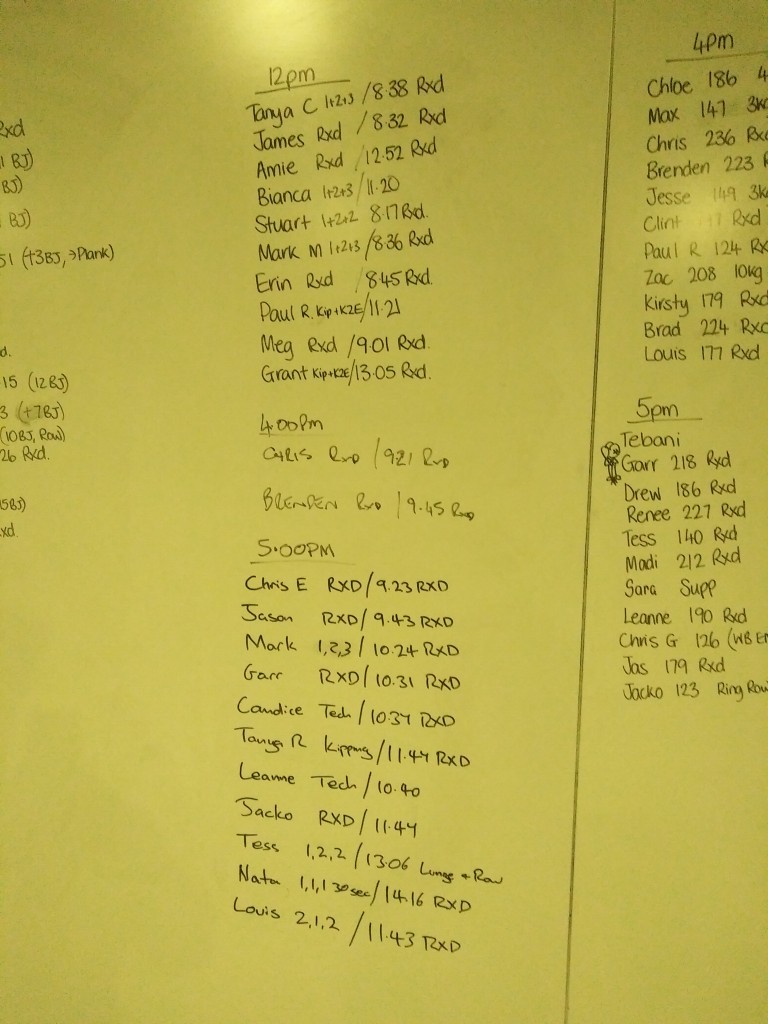 Rxd
1 BJ)
BJ)
BJ)
51 (+3BJ, →Plank)
d.
15 (12BJ)
3 (+7BJ)
(10BJ, Row)
26 Rxd.
5BJ)
xd.
12pm
Tanya C 1+2+3 / 8.38 Rxd
James Rxd / 8.32 Rxd
Amie Rxd / 12.52 Rxd
Bianca 1+2+3 / 11.20
Stuart 1+2+2 8.17 Rxd.
Mark M 1+2+3 / 8.36 Rxd
Erin Rxd / 8.45 Rxd.
Paul R. Kip+K2E / 11.21
Meg Rxd / 9.01 Rxd.
Grant Kip+K2E / 13.05 Rxd.
4.00pm
CHRIS RxD / 9.21 RxD
BRENDEN RxD / 9.45 RxD
5.00PM
Chris E RXD / 9.23 RXD
Jason RXD / 9.43 RXD
Mark 1,2,3 / 10.24 RXD
Garr RXD / 10.31 RXD
Candice Tech / 10.37 RXD
Tanya R Kipping / 11.47 RXD
Leanne Tech / 10.40
Jacko RXD / 11.44
Tess 1,2,2 / 13.06 Lunge + Row
Nata 1,1,1 30sec / 14.16 RXD
Louis 2,1,2 / 11.43 RXD
4pm
Chloe 186 4
Max 147 3kg
Chris 236 Rxd
Brenden 223 R
Jesse 149 3k
Clint Rxd
Paul R 124 Rx
Zac 208 10kg
Kirsty 179 Rxd
Brad 224 Rxd
Louis 177 Rxd
5pm
Tebani
Garr 218 Rxd
Drew 186 Rxd
Renee 227 Rxd
Tess 140 Rxd
Madi 212 Rxd
Sara Supp
Leanne 190 Rxd
Chris G 126 (WB
Jas 179 Rxd
Jacko 123 Ring Row